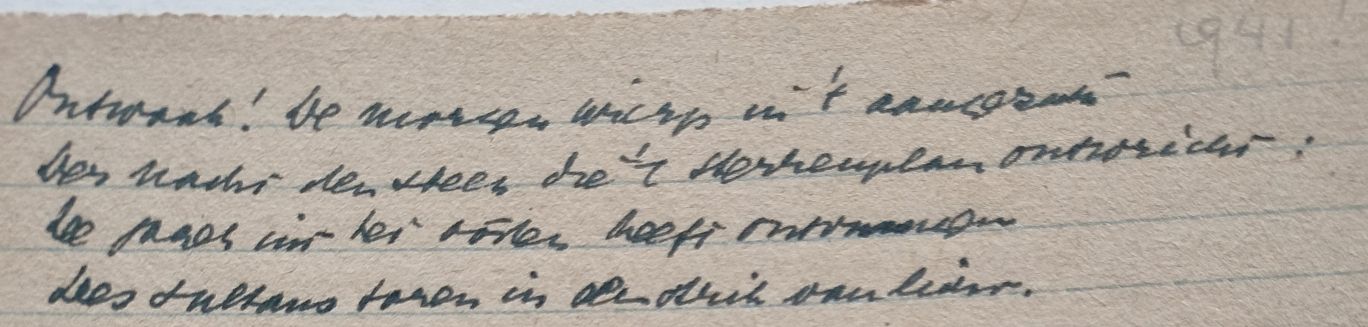 1941!
Ontwaak! De morgen wierp in 't aangezicht
Der Nacht den steen die 't sterrenplan ontwricht:
De jager uit het oosten heeft
Des sultans toren in den strik van licht.